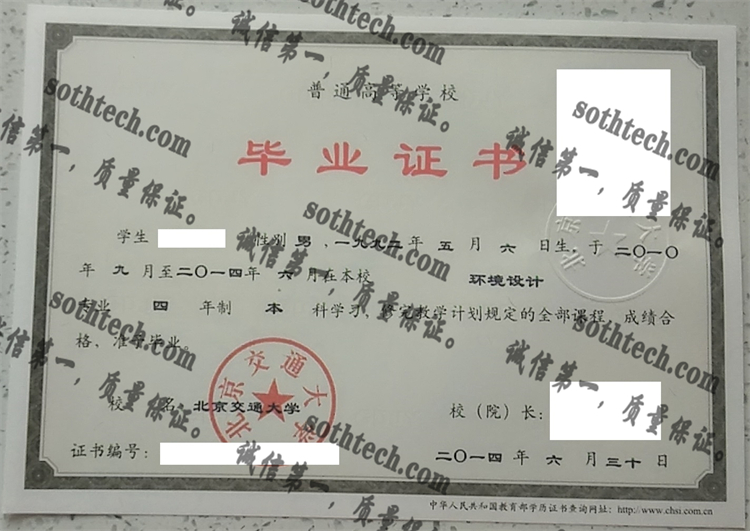 普通高等学校
毕业证书
学生 性别 男，一九九二年 五 月 六 日生，于 二〇一〇
年 九 月至二〇一四年 六 月在本校 环境设计
专业 四 年制 本 科学习，修完教学计划规定的全部课程，成绩合
格，准予毕业。
校 名：北京交通大学 校（院）长：
证书编号： 二〇一四 年 六 月 三十 日
中华人民共和国教育部学历证书查询网址：http://www.chsi.com.cn
北京交通大学
sothtech.com
诚信第一，质量保证。
sothtech.com
诚信第一，质量保证。
sothtech.com
诚信第一，质量保证。
sothtech.com
诚信第一，质量保证。
sothtech.com
诚信第一，质量保证。
sothtech.com
诚信第一，质量保证。
sothtech.com
诚信第一，质量保证。
sothtech.com
诚信第一，质量保证。